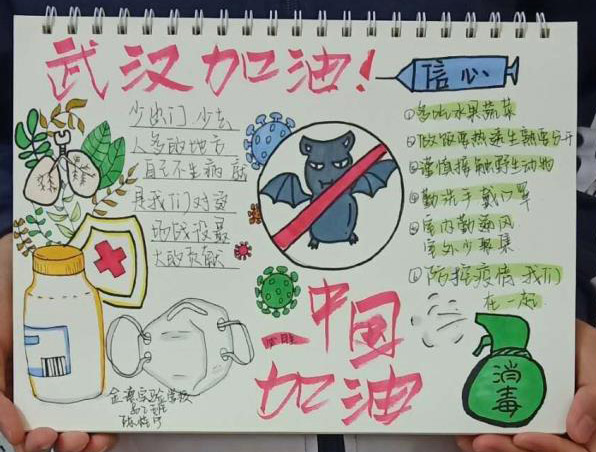 武汉加油!
信心
少出门 少去
人多的地方
自己不生病 就
是我们对这
场战役最
大的贡献
①多吃水果蔬菜
②做饭要热透生熟要分开
③谨慎接触野生动物
④勤洗手戴口罩
⑤室内勤通风
室外少聚集
⑥防控疫情 我们
在一起
中国
加油
消毒
实验学校